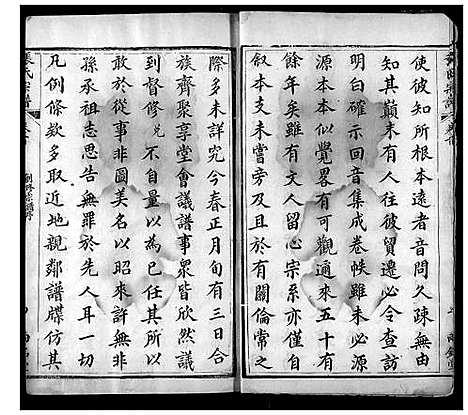 使彼知所根本遠者音問久疎無由
知其巔末有人於彼貿遷必令查訪
明白確示回音集成卷帙雖未必源
源本本似覺畧有可觀適來五十有
餘年矣雖有文人留心宗系亦僅自
叙本支未嘗旁及至於有關倫常之
際多未詳究今春正月旬有三日合
族齊聚享堂會議譜事衆皆欣然請
到督修 不自量以為己任其所以
敢於從事非圖美名以昭來許無非
孫承祖志思告無罪於先人耳一切
凡例條款多取近地親鄰譜牒仿其
氏宗譜